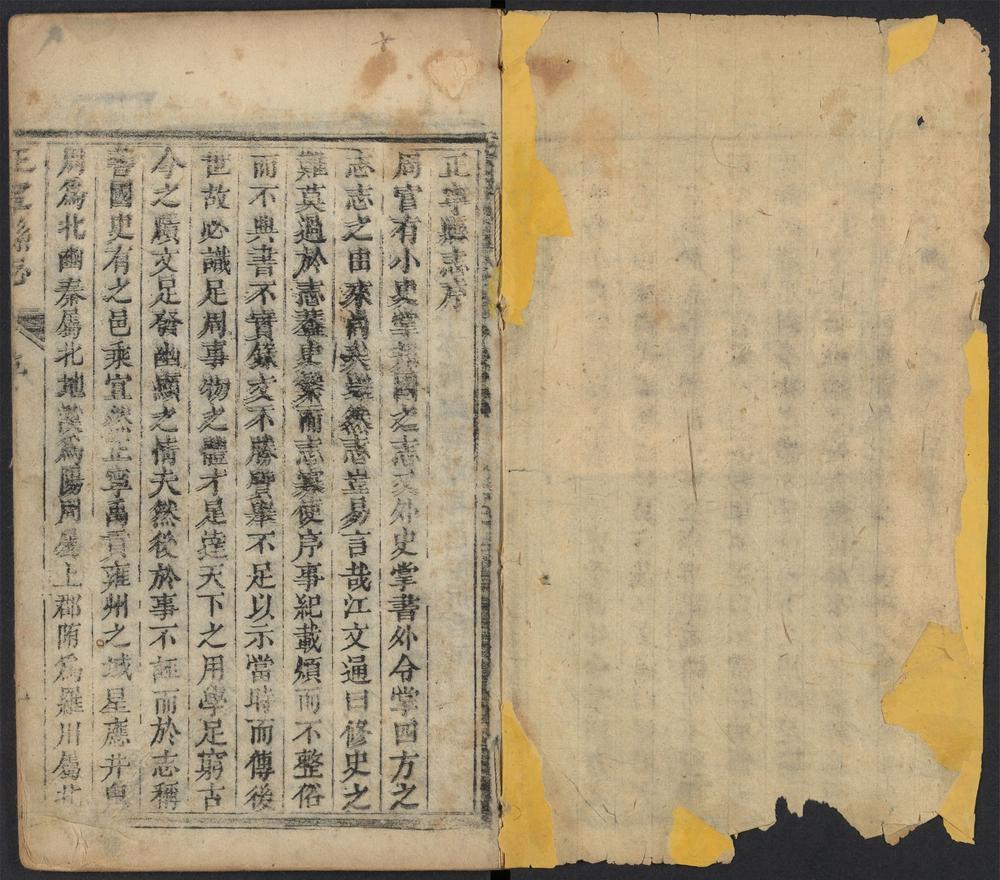 正寧縣志序
周官有小史掌邦國之志又外史掌書外令掌四方之
志志之由來尚矣然志豈易言哉江文通曰修史之
難莫過於志蓋史繁而志寡使序事紀載煩而不整俗
而不典書不實錄文不勝質舉不足以示當時而傳後
世故必識足周事物之體才足達天下之用學足窮古
今之賾文足發幽顯之情夫然後於事不誣而於志稱
善國史有之邑乘宜然正寧禹貢雍州之域星應井鬼
周為北豳秦屬北地漢為陽周屬上郡隋為羅川屬北
正寧縣志
序